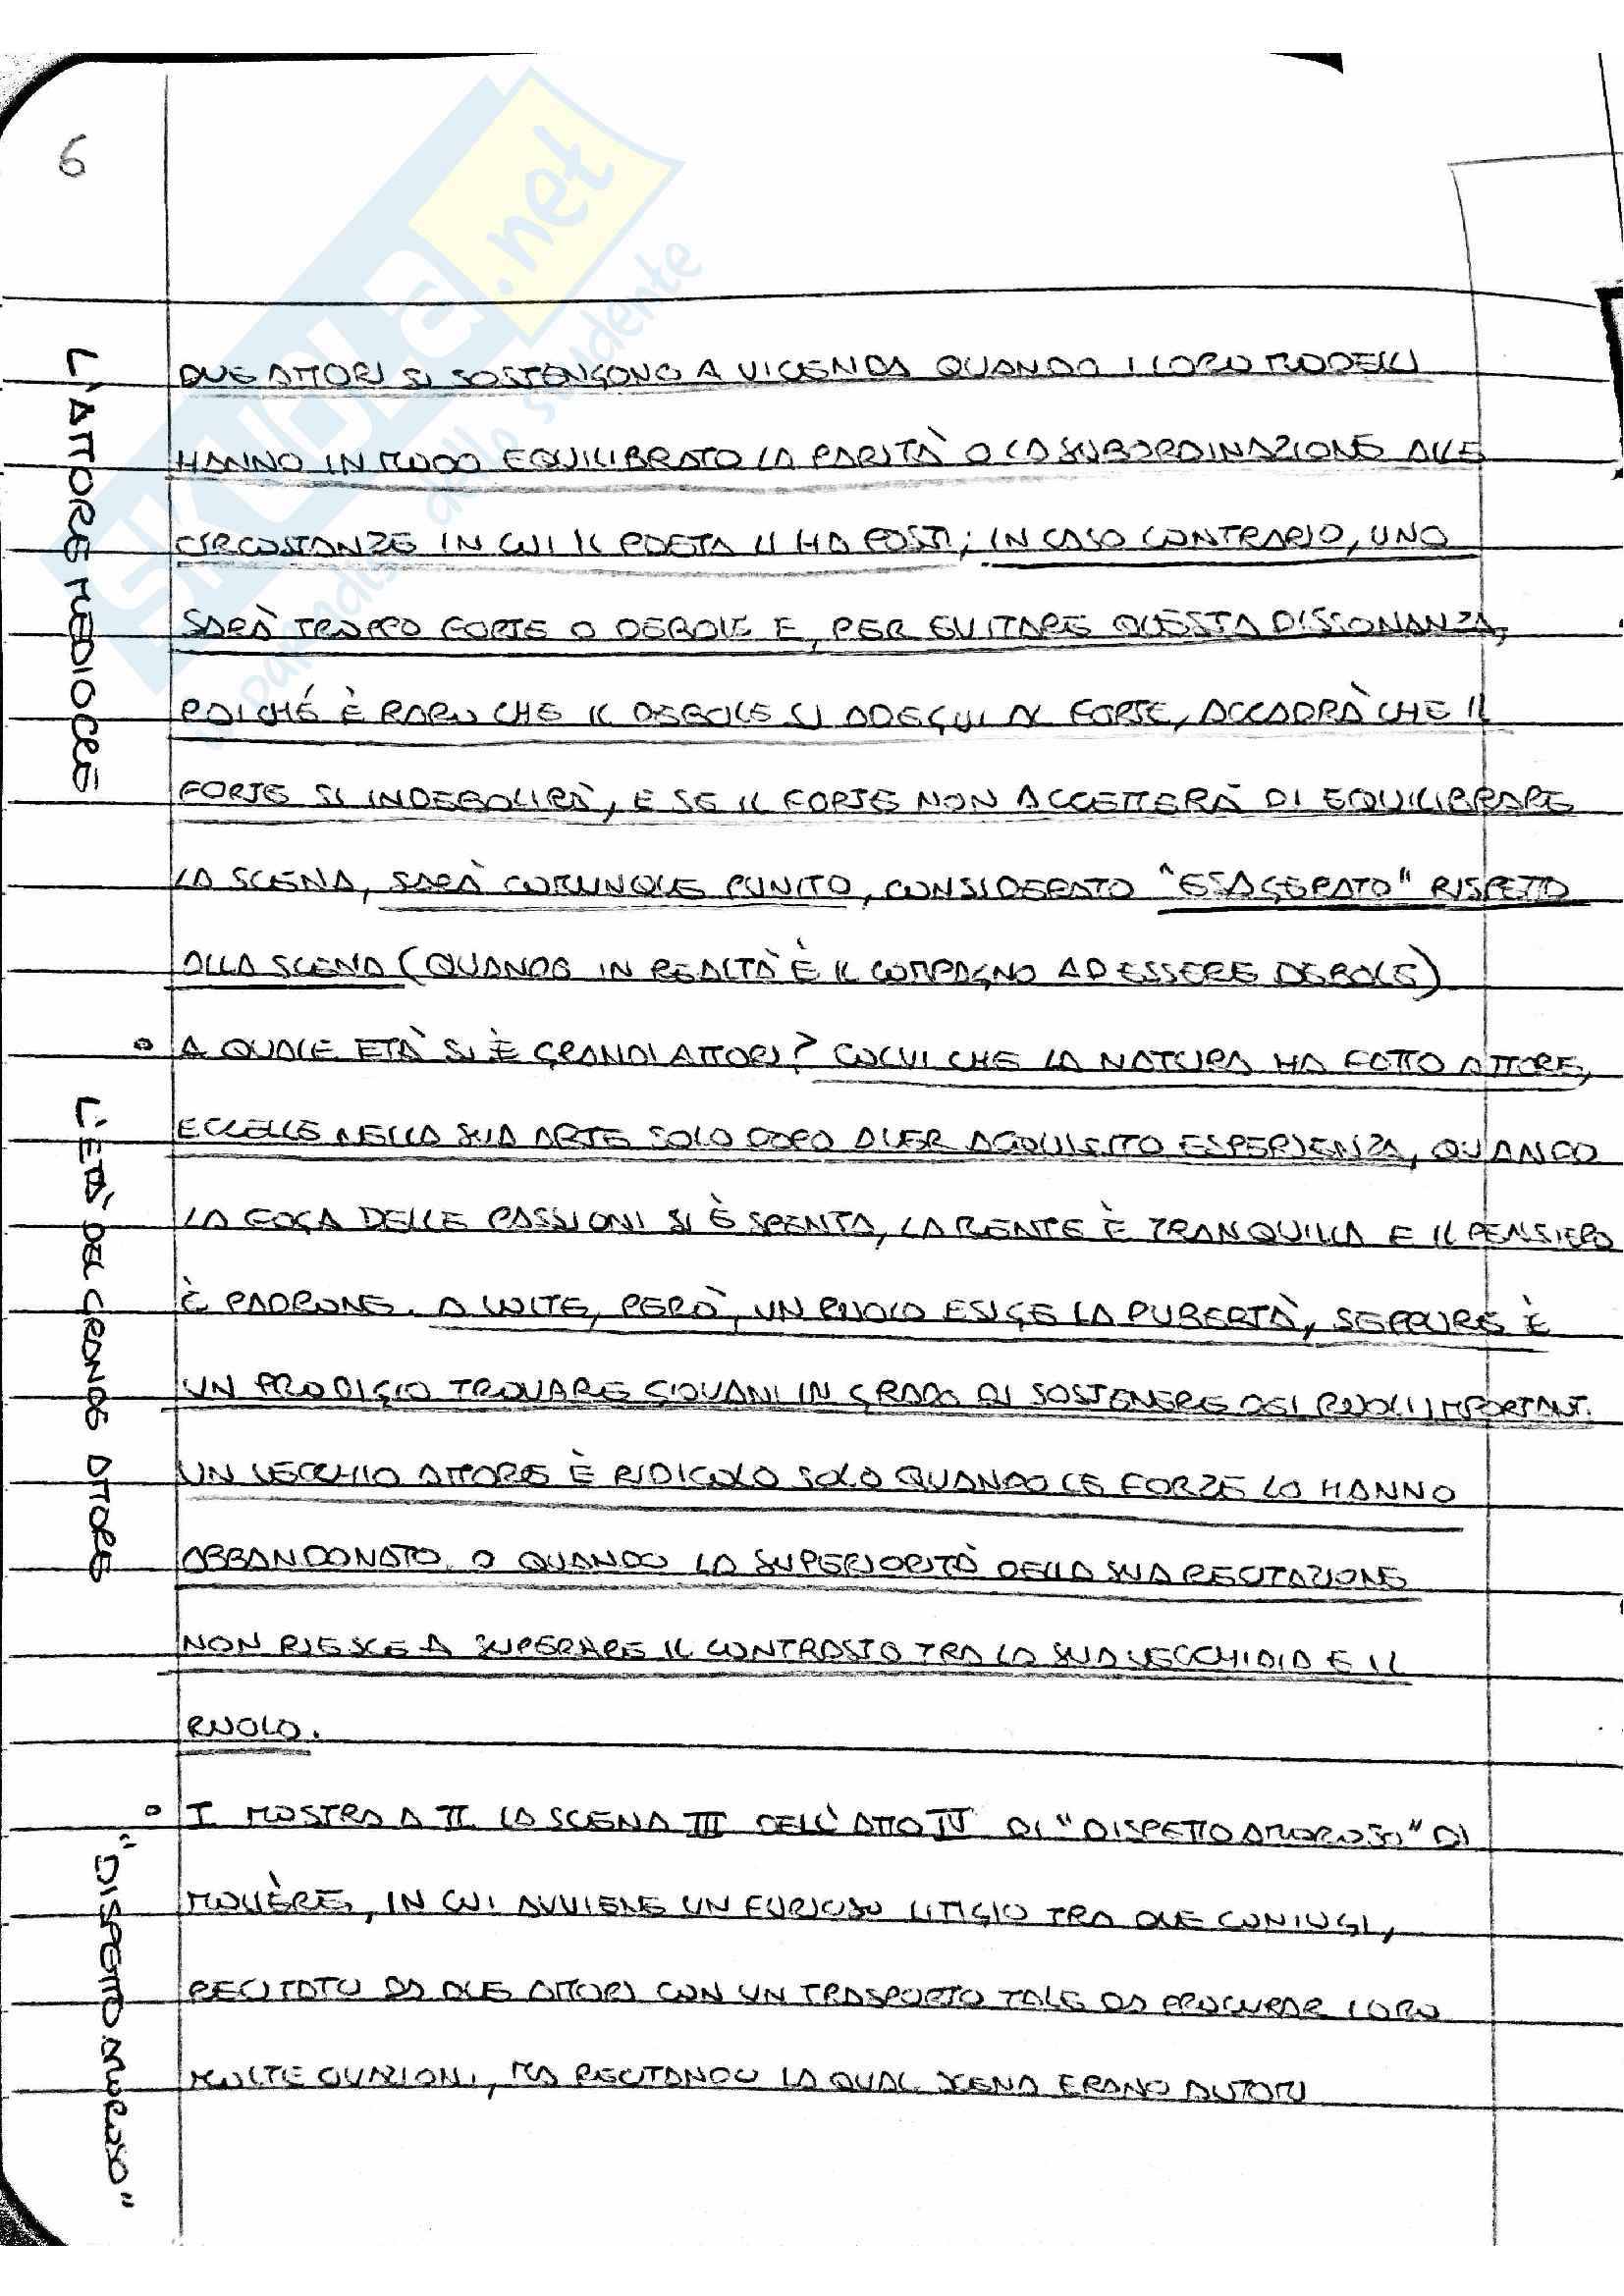 6
L'ATTORE MEDIOCRE
DUE ATTORI SI SOSTENGONO A VICENDA QUANDO I LORO MODELLI
HANNO IN MODO EQUILIBRATO LA PARITÀ O LA SUBORDINAZIONE ALLE
CIRCOSTANZE IN CUI IL POETA LI HA POSTI; IN CASO CONTRARIO, UNO
SARÀ TROPPO FORTE O DEBOLE E, PER EVITARE QUESTA DISSONANZA,
POICHÉ È RARO CHE IL DEBOLE SI ADEGUI AL FORTE, ACCADRÀ CHE IL
FORTE SI INDEBOLIRÀ, E SE IL FORTE NON ACCETTERÀ DI EQUILIBRARE
LA SCENA, SARÀ COMUNQUE PUNITO, CONSIDERATO "ESAGERATO" RISPETTO
ALLA SCENA (QUANDO IN REALTÀ È IL COMPAGNO AD ESSERE DEBOLE)
L'ETÀ DEL GRANDE ATTORE
° A QUALE ETÀ SI È GRANDI ATTORI? COLUI CHE LA NATURA HA FATTO ATTORE,
ECCELLE NELLA SUA ARTE SOLO DOPO AVER ACQUISITO ESPERIENZA, QUANDO
LA FOGA DELLE PASSIONI SI È SPENTA, LA MENTE È TRANQUILLA E IL PENSIERO
È PADRONE. A VOLTE, PERÒ, UN RUOLO ESIGE LA PUBERTÀ, SEPPURE È
UN PRODIGIO TROVARE GIOVANI IN GRADO DI SOSTENERE DEI RUOLI IMPORTANTI.
UN VECCHIO ATTORE È RIDICOLO SOLO QUANDO LE FORZE LO HANNO
ABBANDONATO O QUANDO LA SUPERIORITÀ DELLA SUA RECITAZIONE
NON RIESCE A SUPERARE IL CONTRASTO TRA LA SUA VECCHIAIA E IL
RUOLO.
"DISPETTO AMOROSO"
° I MOSTRA A II LA SCENA III DELL'ATTO IV DI "DISPETTO AMOROSO" DI
MOLIÈRE, IN CUI AVVIENE UN FURIOSO LITIGIO TRA DUE CONIUGI,
RECITATO DA DUE ATTORI CON UN TRASPORTO TALE DA PROCURAR LORO
MOLTE OVAZIONI, MA RECITANDO LA QUAL SCENA ERANO AUTORI
SKUOLA.net
il paradiso dello studente